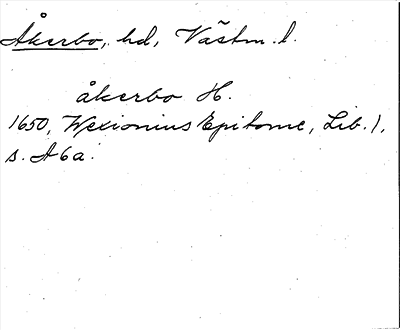 Åkerbo, hd, Västm. l.
åkerbo H.
1650, Wexionius Epitome, Lib. 1,
s. A6a.